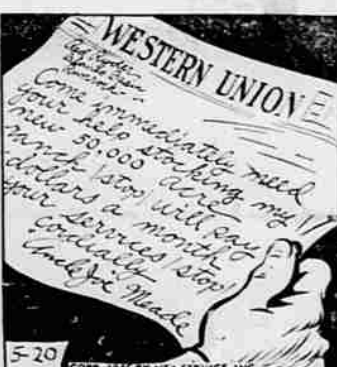 WESTERN UNION
Red Ryder
Come immediately need
your help stocking my
new 50,000 acre
ranch /stop/ will pay
dollars a month
your services /stop/
cordially
Uncle Joe Meade
5-20